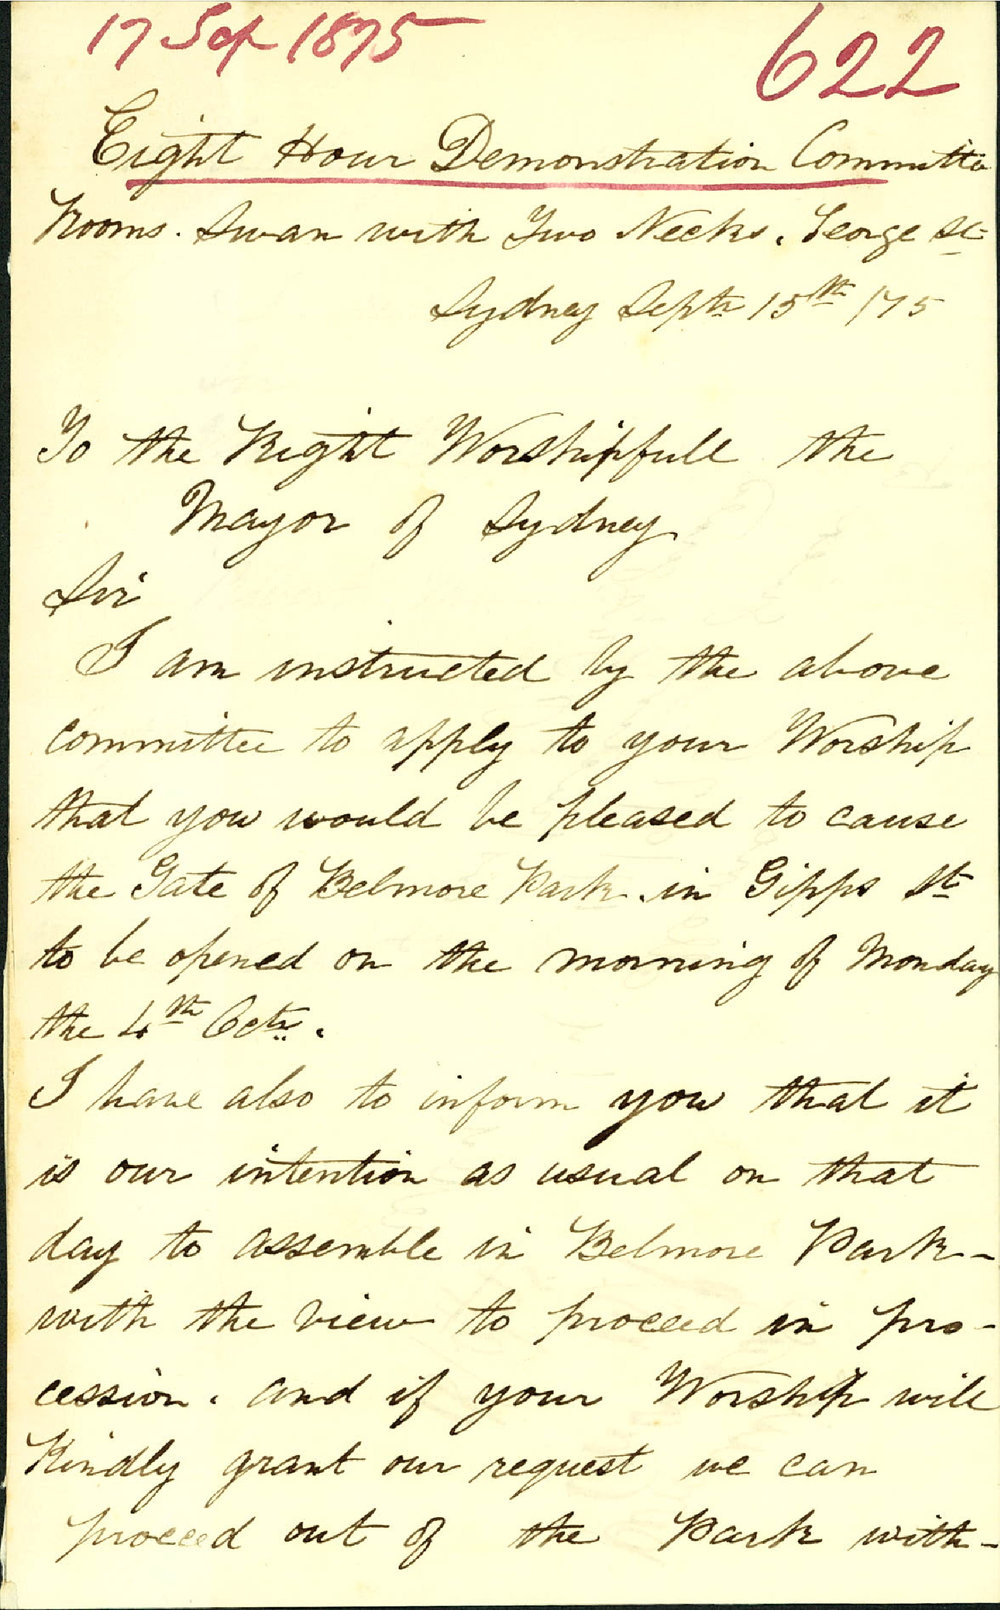 17 Sep 1875
622
Eight Hour Demonstration Committee
Rooms. Swan with Two Necks. George St
Sydney Septr 15th /75
To the Right Worshipfull the
Mayor of Sydney
Sir
I am instructed by the above
committee to apply to your Worship
that you would be pleased to cause
the Gate of Belmore Park. in Gipps St
to be opened on the morning of Monday
the 4th Octr.
I have also to inform you that it
is our intention as usual on that
day to assemble in Belmore Park-
with the view to proceed in pro-
cession. and if your Worship will
Kindly grant our request we can
proceed out of the Park with-